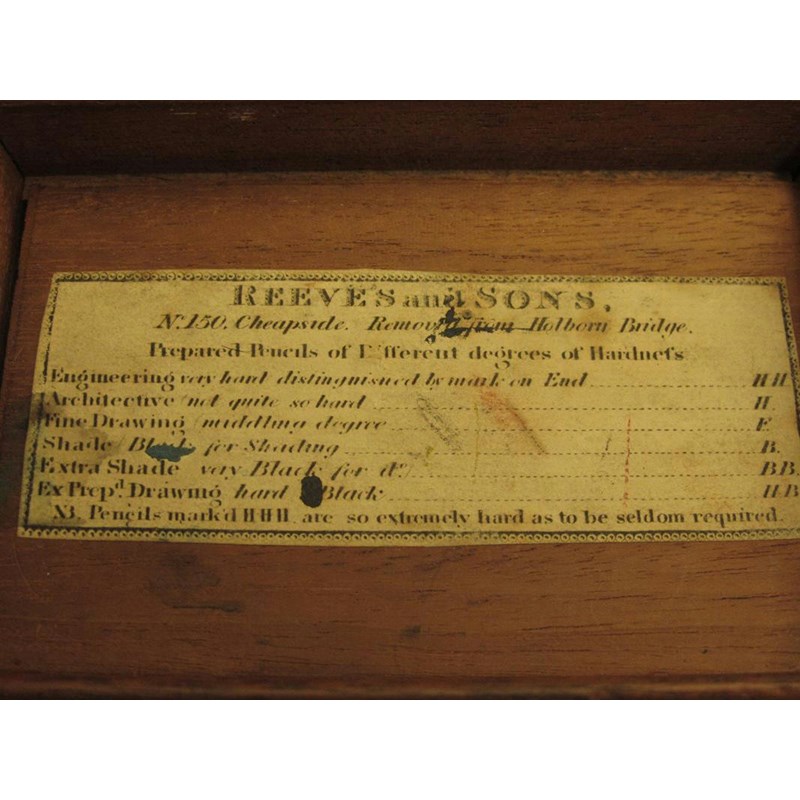 REEVES and SONS,
No. 150, Cheapside. Removed from Holborn Bridge.
Prepared Pencils of Different degrees of Hardneſs
Engineering very hard distinguished by mark on End HH
Architective (not quite so hard H.
Fine Drawing (middling degree F.
Shade (Black for Shading B.
Extra Shade very Black for do.) BB.
Ex Prepd. Drawing hard Black HB
NB. Pencils mark'd HHH are so extremely hard as to be seldom required.